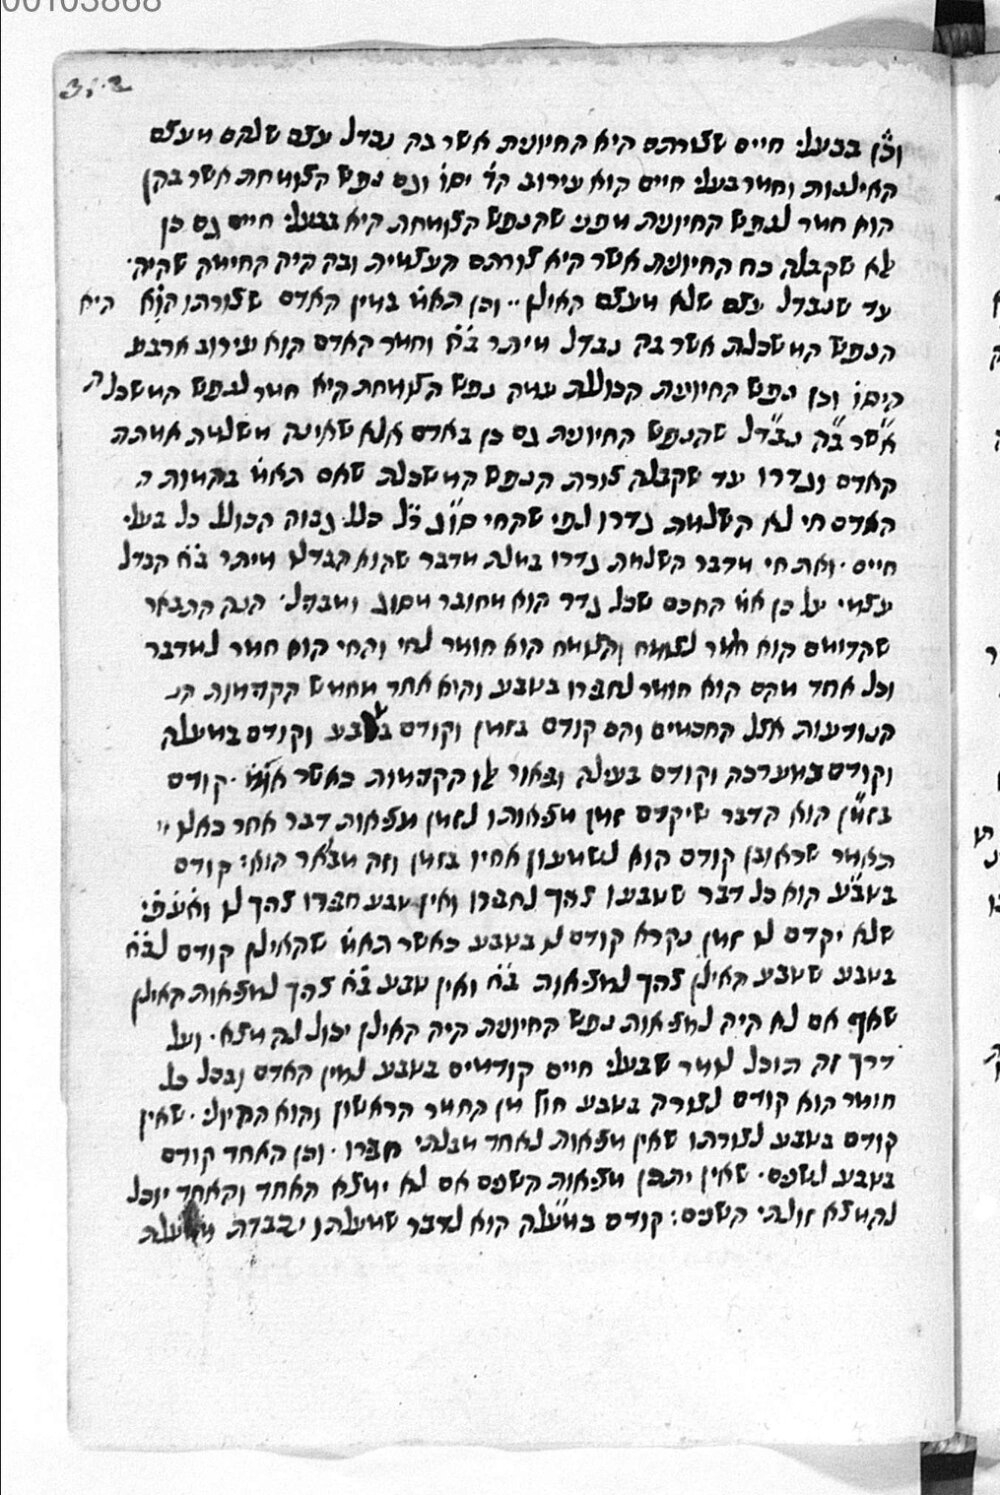 00103868
312
וכ"ן בבעלי חיים שצורתם היא החיונית אשר בה נבדל עצם שלהם מעצם
האילנות וחמר בעלי חיים הוא עירוב הד' יסו' וגם נפש הצומחת אשר בהן
הוא חמר לנפש החיונית מפני שהנפש הצומחת היא בבעלי חיים גם כן
לא שקבלה כח החיונית אשר היא צורתם העצמית ובה היה החימה שהיה.
עד שנבדל עצם שלא מעצם האילן .. וכן תאמ' במין האדם שצורתו הו'א היא
הנפש המשכלת אשר בה נבדל מיתר ב"ח וחמר האדם הוא עירוב ארבע
היסו' וכן נפש החיונית הכוללת עמה נפש הצומחת היא חמר לנפש המשכלת
א"שר ב"ה נב"דל שהנפש החיונית גם כן באדם אלא שאינה משלמת אמתת
האדם וגדרו עד שקבלה צורת הנפש המשכלת שאם תאמ' במהות ה
האדם חי לא השלמת גדרו לפי שהחי סו"ג ר"ל כלל גבוה הכולל כל בעלי
חיים . ואת חי מדבר השלמת גדרו במלת מדבר שהוא הבדלו מיתר ב"ח הבדל
עצמי על כן אמ' החכם שכל גדר הוא מחובר מסוג ומבדל . הנה התבאר
שהדומם הוא חמר לצומח והצומח הוא חומר לחי והחי הוא חמר למדבר
וכל אחד מהם הוא חומר לחברו בטבע והוא אחד מחמש הקדמות הנ
הנודעות אצל החכמים והם קודם בזמן וקודם בטבע וקודם במעלה
וקודם במערכה וקודם בעילה ובאור לן הקדמות כאשר אומ' . קודם
בזמ"ן הוא הדבר שיקדם זמן מציאותו לזמן מציאות דבר אחר כאלו
תאמר שראובן קודם הוא לשמעון אחיו בזמן וזה מבואר הוא : קודם
בטב"ע הוא כל דבר שטבעו צריך לחברו ואין טבע חברו צריך לו ואע"פי
שלא יקדם לו זמן נקרא קודם לו בטבע כאשר תאמ' שהאילן קודם לב"ח
בטבע שטבע האילן צריך למציאות ב"ח ואין טבע ב"ח צריך למציאות האילן
שאף אם לא היה למציאות נפש החיונית היה האילן יכול להמצא . ועל
דרך זה תוכל לומר שבעלי חיים קודמים בטבע למין האדם ובכל כל
חומר הוא קודם לצורה בטבע חוץ מן החמר הראשון והוא ההיולי . שאין
קודם בטבע לצורתו שאין מציאות לאחד מבלתי חברו . וכן האחד קודם
בטבע לשנים . שאין יתכן מציאות השנים אם לא ימצא האחד והאחד יוכל
להמצא זולתי השנים : קודם במ"עלה הוא לדבר שמעלתו יכבדת מעלת